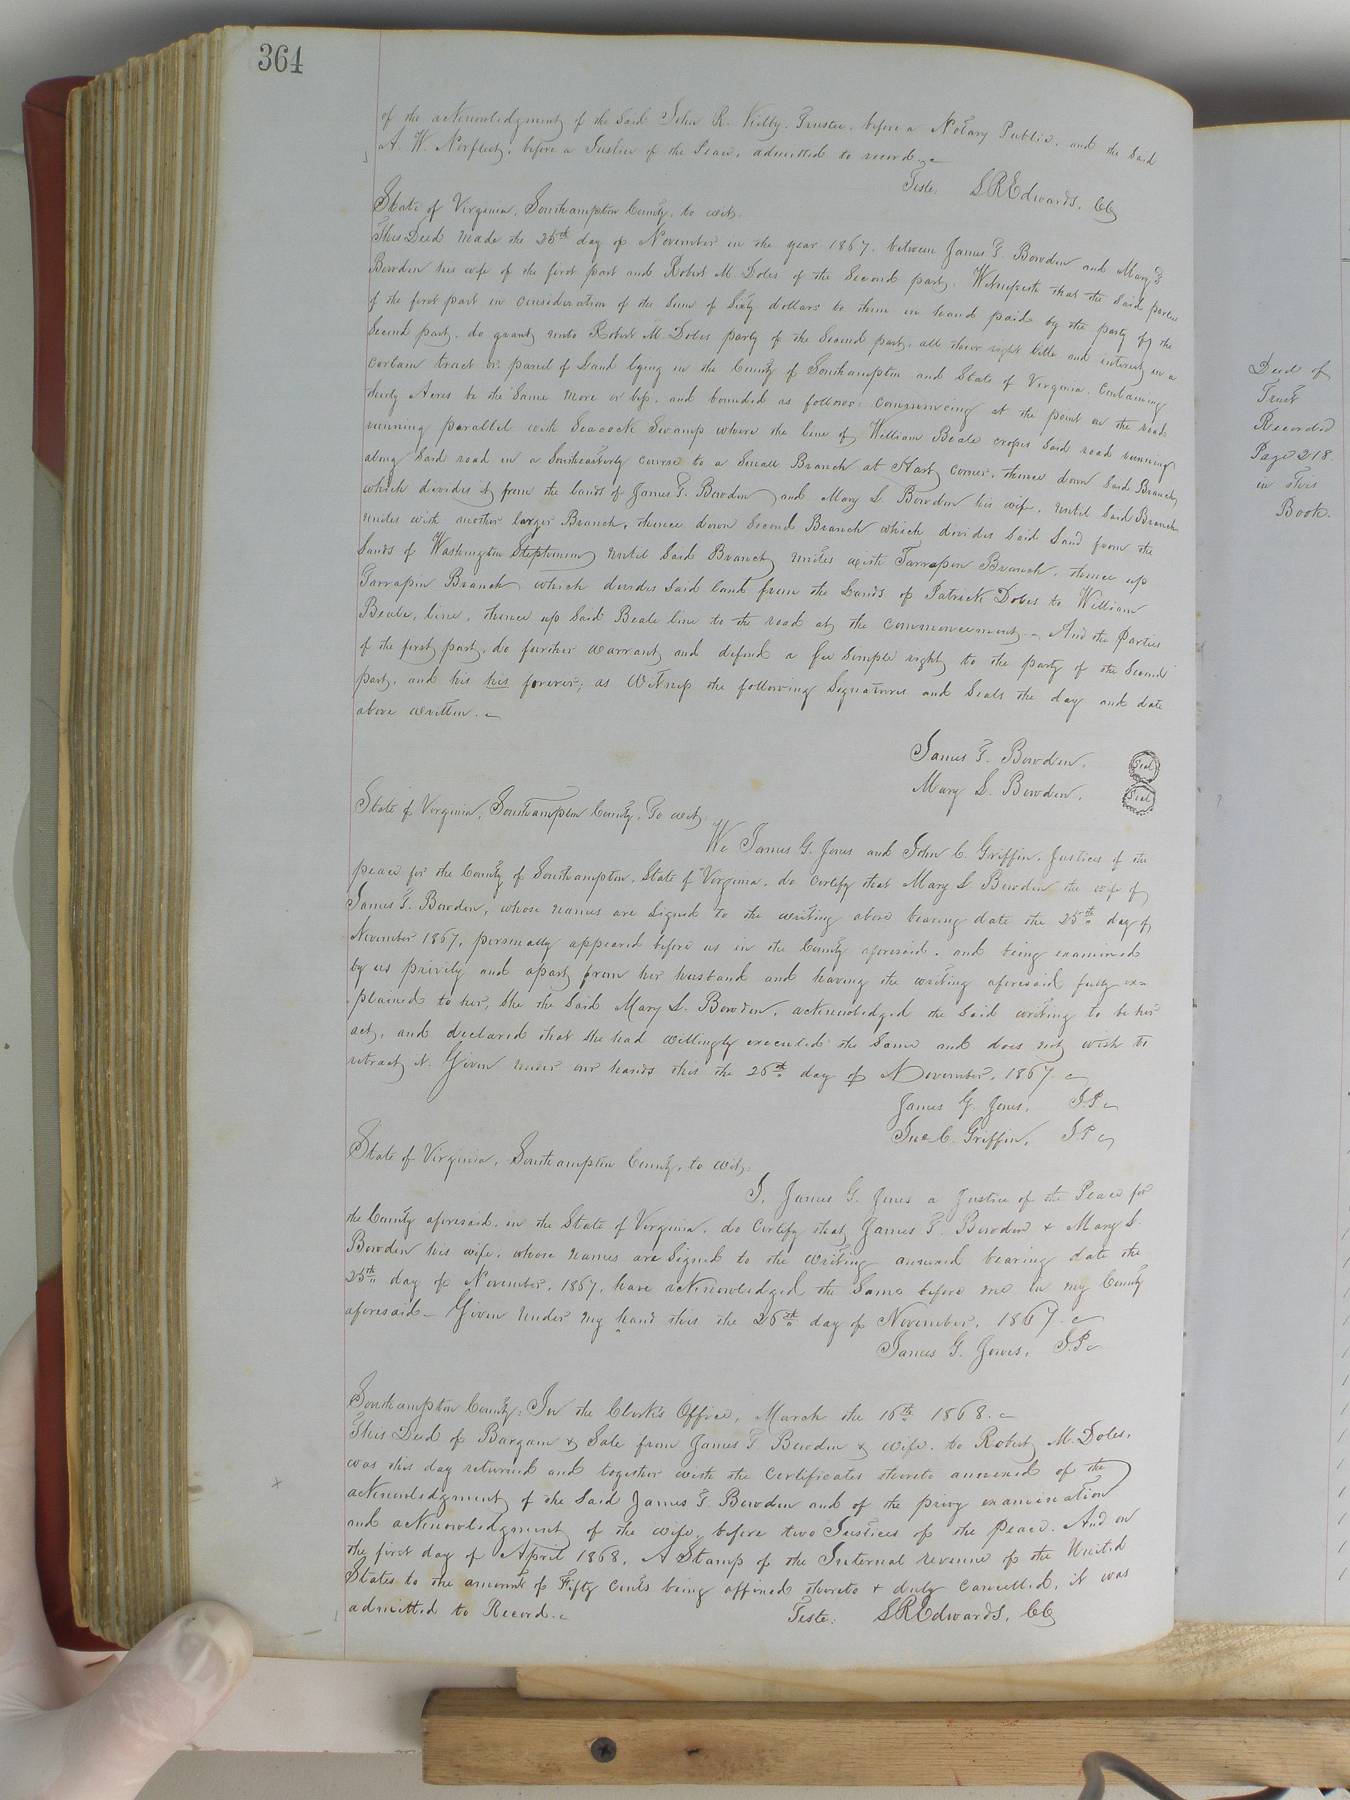 364
of the acknowledgment of the said John R. Kielly. Trustee. before a Notary Public. and the said
A. W. Norfleet, before a Justice of the Peace, admitted to record.
Teste. S R Edwards, CC
State of Virginia, Southampton County, to wit.
This Deed made the 25th day of November in the year 1867. between James T. Bowden and Mary S
Bowden his wife of the first part and Robert M. Doles of the Second part. Witnesseth that the Said parties
of the first part in consideration of the Sum of Sixty dollars to them in hand paid by the party of the
Second part. do grant unto Robert M. Doles party of the Second part. all their right title and interest in a
certain tract or parcel of Land lying in the County of Southampton and State of Virginia. Containing
thirty Acres be the Same more or less. and bounded as follows: Commencing at the point on the road
running parallel with Seacock Swamp where the line of William Beale crosses Said road running
along Said road in a Southeasterly course to a Small Branch at Start corner. thence down Said Branch
which divides it from the lands of James T. Bowden and Mary S. Bowden his wife. until Said Branch
unites with another larger Branch. thence down Second Branch which divides Said Land from the
Lands of Washington Stephenson until Said Branch unites with Tarrapin Branch. thence up
Tarrapin Branch which divides Said land from the Lands of Patrick Doles to William
Beale, line, thence up Said Beale line to the road at the commencement. And the Parties
of the first part. do further warrant and defend a fee Simple right to the party of the Second
part. and his his forever; as Witness the following Signatures and Seals the day and date
above written.
James T. Bowden. Seal
Mary S. Bowden. Seal
State of Virginia, Southampton County, To wit.
We James G. Jones and John C. Griffin. Justices of the
peace for the County of Southampton. State of Virginia. do certify that Mary S Bowden the wife of
James T. Bowden, whose names are Signed to the writing above bearing date the 25th day of
November 1867, personally appeared before us in the County aforesaid. and being examined
by us privily and apart from her husband and having the writing aforesaid fully ex=
plained to her, She the Said Mary S. Bowden. acknowledged the Said writing to be her
act, and declared that She had willingly executed the Same and does not wish to
retract it. Given under our hands this the 26th day of November. 1867.
James G. Jones. J.P.
Jno C. Griffin. J.P.
State of Virginia, Southampton County, to wit.
I, James G. Jones a Justice of the Peace for
the County aforesaid. in the State of Virginia. do Certify that James T. Bowden & Mary S.
Bowden his wife. whose names are Signed to the writing annexed bearing date the
25th day of November, 1867, have acknowledged the Same before me in my County
aforesaid— Given Under my hand this the 26th day of November, 1867.
James G. Jones. J.P.
Southampton County: In the Clerk's Office, March the 16th 1868.
This Deed of Bargain & Sale from James T Bowden & wife. to Robert M. Doles.
was this day returned and together with the Certificates thereto annexed of the
acknowledgment of the Said James T. Bowden and of the privy examination
and acknowledgment of the wife, before two Justices of the peace. And on
the first day of April 1868. A Stamp of the Internal revenue of the United
States to the amount of Fifty Cents being affixed thereto & duly cancelled, it was
admitted to Record.
Teste: S R Edwards, CC
Deed of
Trust
Recorded
Page 218.
in this
Book.